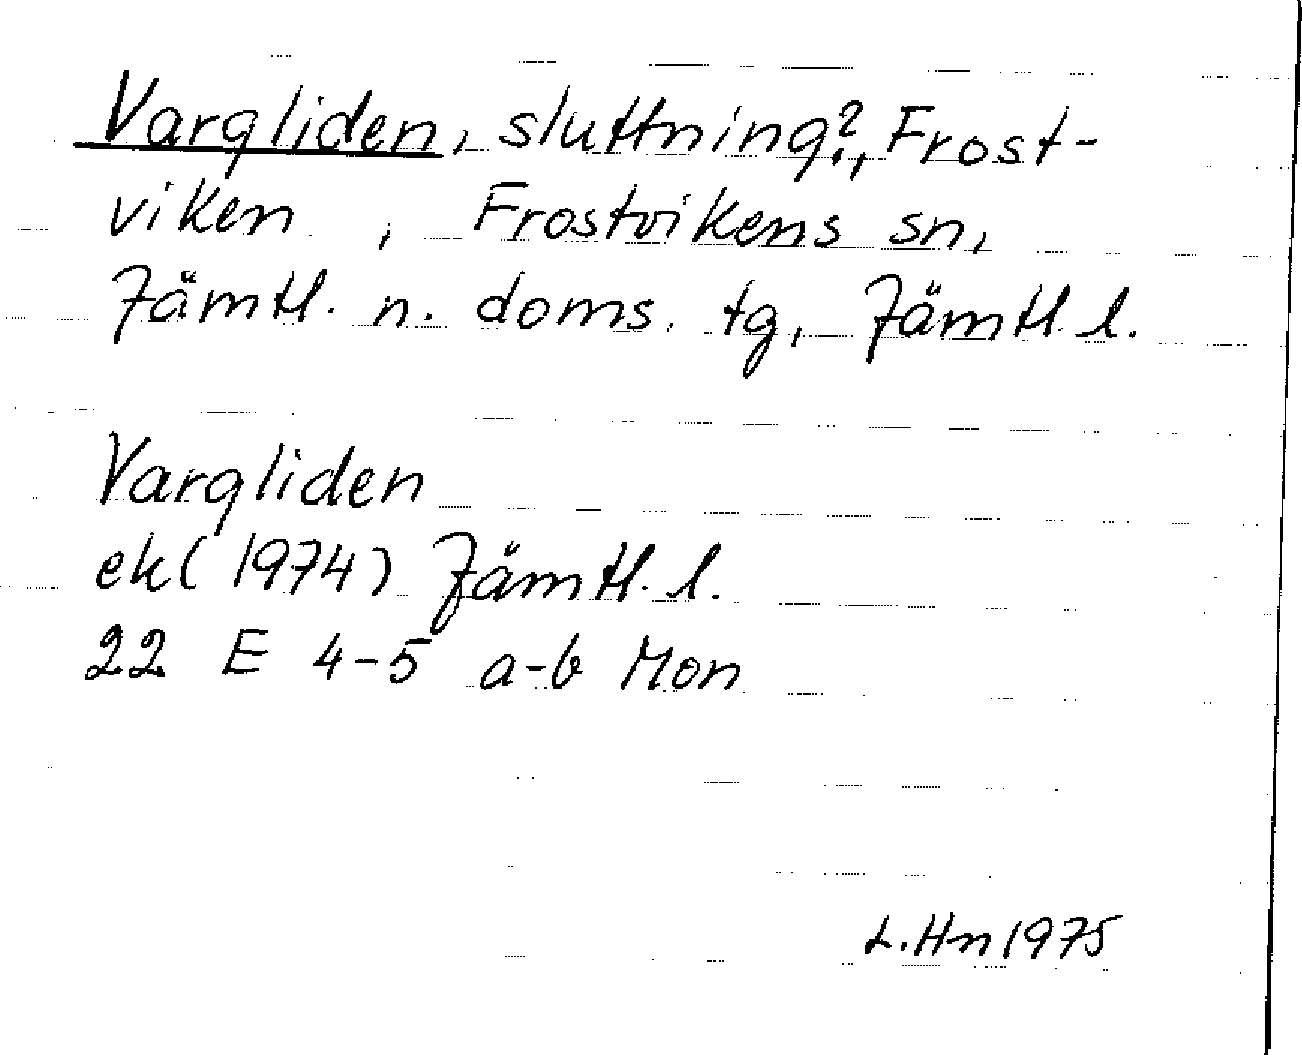 Vargliden, sluttning?, Frost-
viken, Frostvikens sn,
Jämtl. n. doms. tg, Jämtl. l.
Vargliden
ek (1974) Jämtl. l.
22 E 4-5 a-b Mon
L. Hn 1975